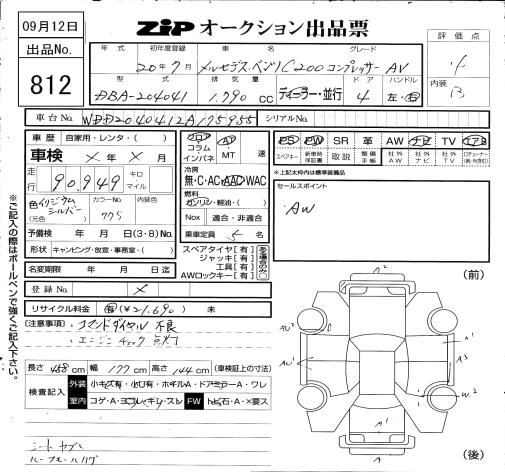 09月12日
出品No.
812
ZiP オークション出品票
評価点
内装
B
年式 初年度登録 車名 グレード
20年7月 メルセデス・ベンツ C200コンプレッサー AV
型式 排気量 ドア ハンドル
DBA-204041 1.790 cc ディーラー・並行 4 左・右
車台No. WDD2040412A175955 シリアルNo.
車歴 自家用・レンタ・( )
車検 × 年 × 月
走行 90.949 キロ マイル
色 イリジウムシルバー (元色) カラーNo. 775 内装色
予備検 年 月 日(3・8)No.
形状 キャンピング・放宣・事務室・( )
名変期限 年 月 日迄
フロア コラム インパネ
AT MT 速
冷房
無・C・AC・AAC・WAC
燃料
ガソリン・軽油・( )
Nox 適合・非適合
乗車定員 5 名
スペアタイヤ【有】
ジャッキ【有】
工具【有】
AWロックキー【有】
有る場合のみ○
PS PW SR 革 AW ナビ TV エアB
スペアキー 新車時保証書 取説 整備手帳 社外AW 社外ナビ 社外TV
*上記太枠内は標準装備品
セールスポイント
AW
登録No. ×
リサイクル料金 有(¥21,690) 未
(注意事項) コマンドダイヤル 不良
エンジンチェック 点灯
長さ 458 cm 幅 177 cm 高さ 144 cm (車検証上の寸法)
検査記入 外装
室内
FW
シート ヤブレ
※ご記入の際はボールペンで強くご記入下さい。
(前)
A2
(後)